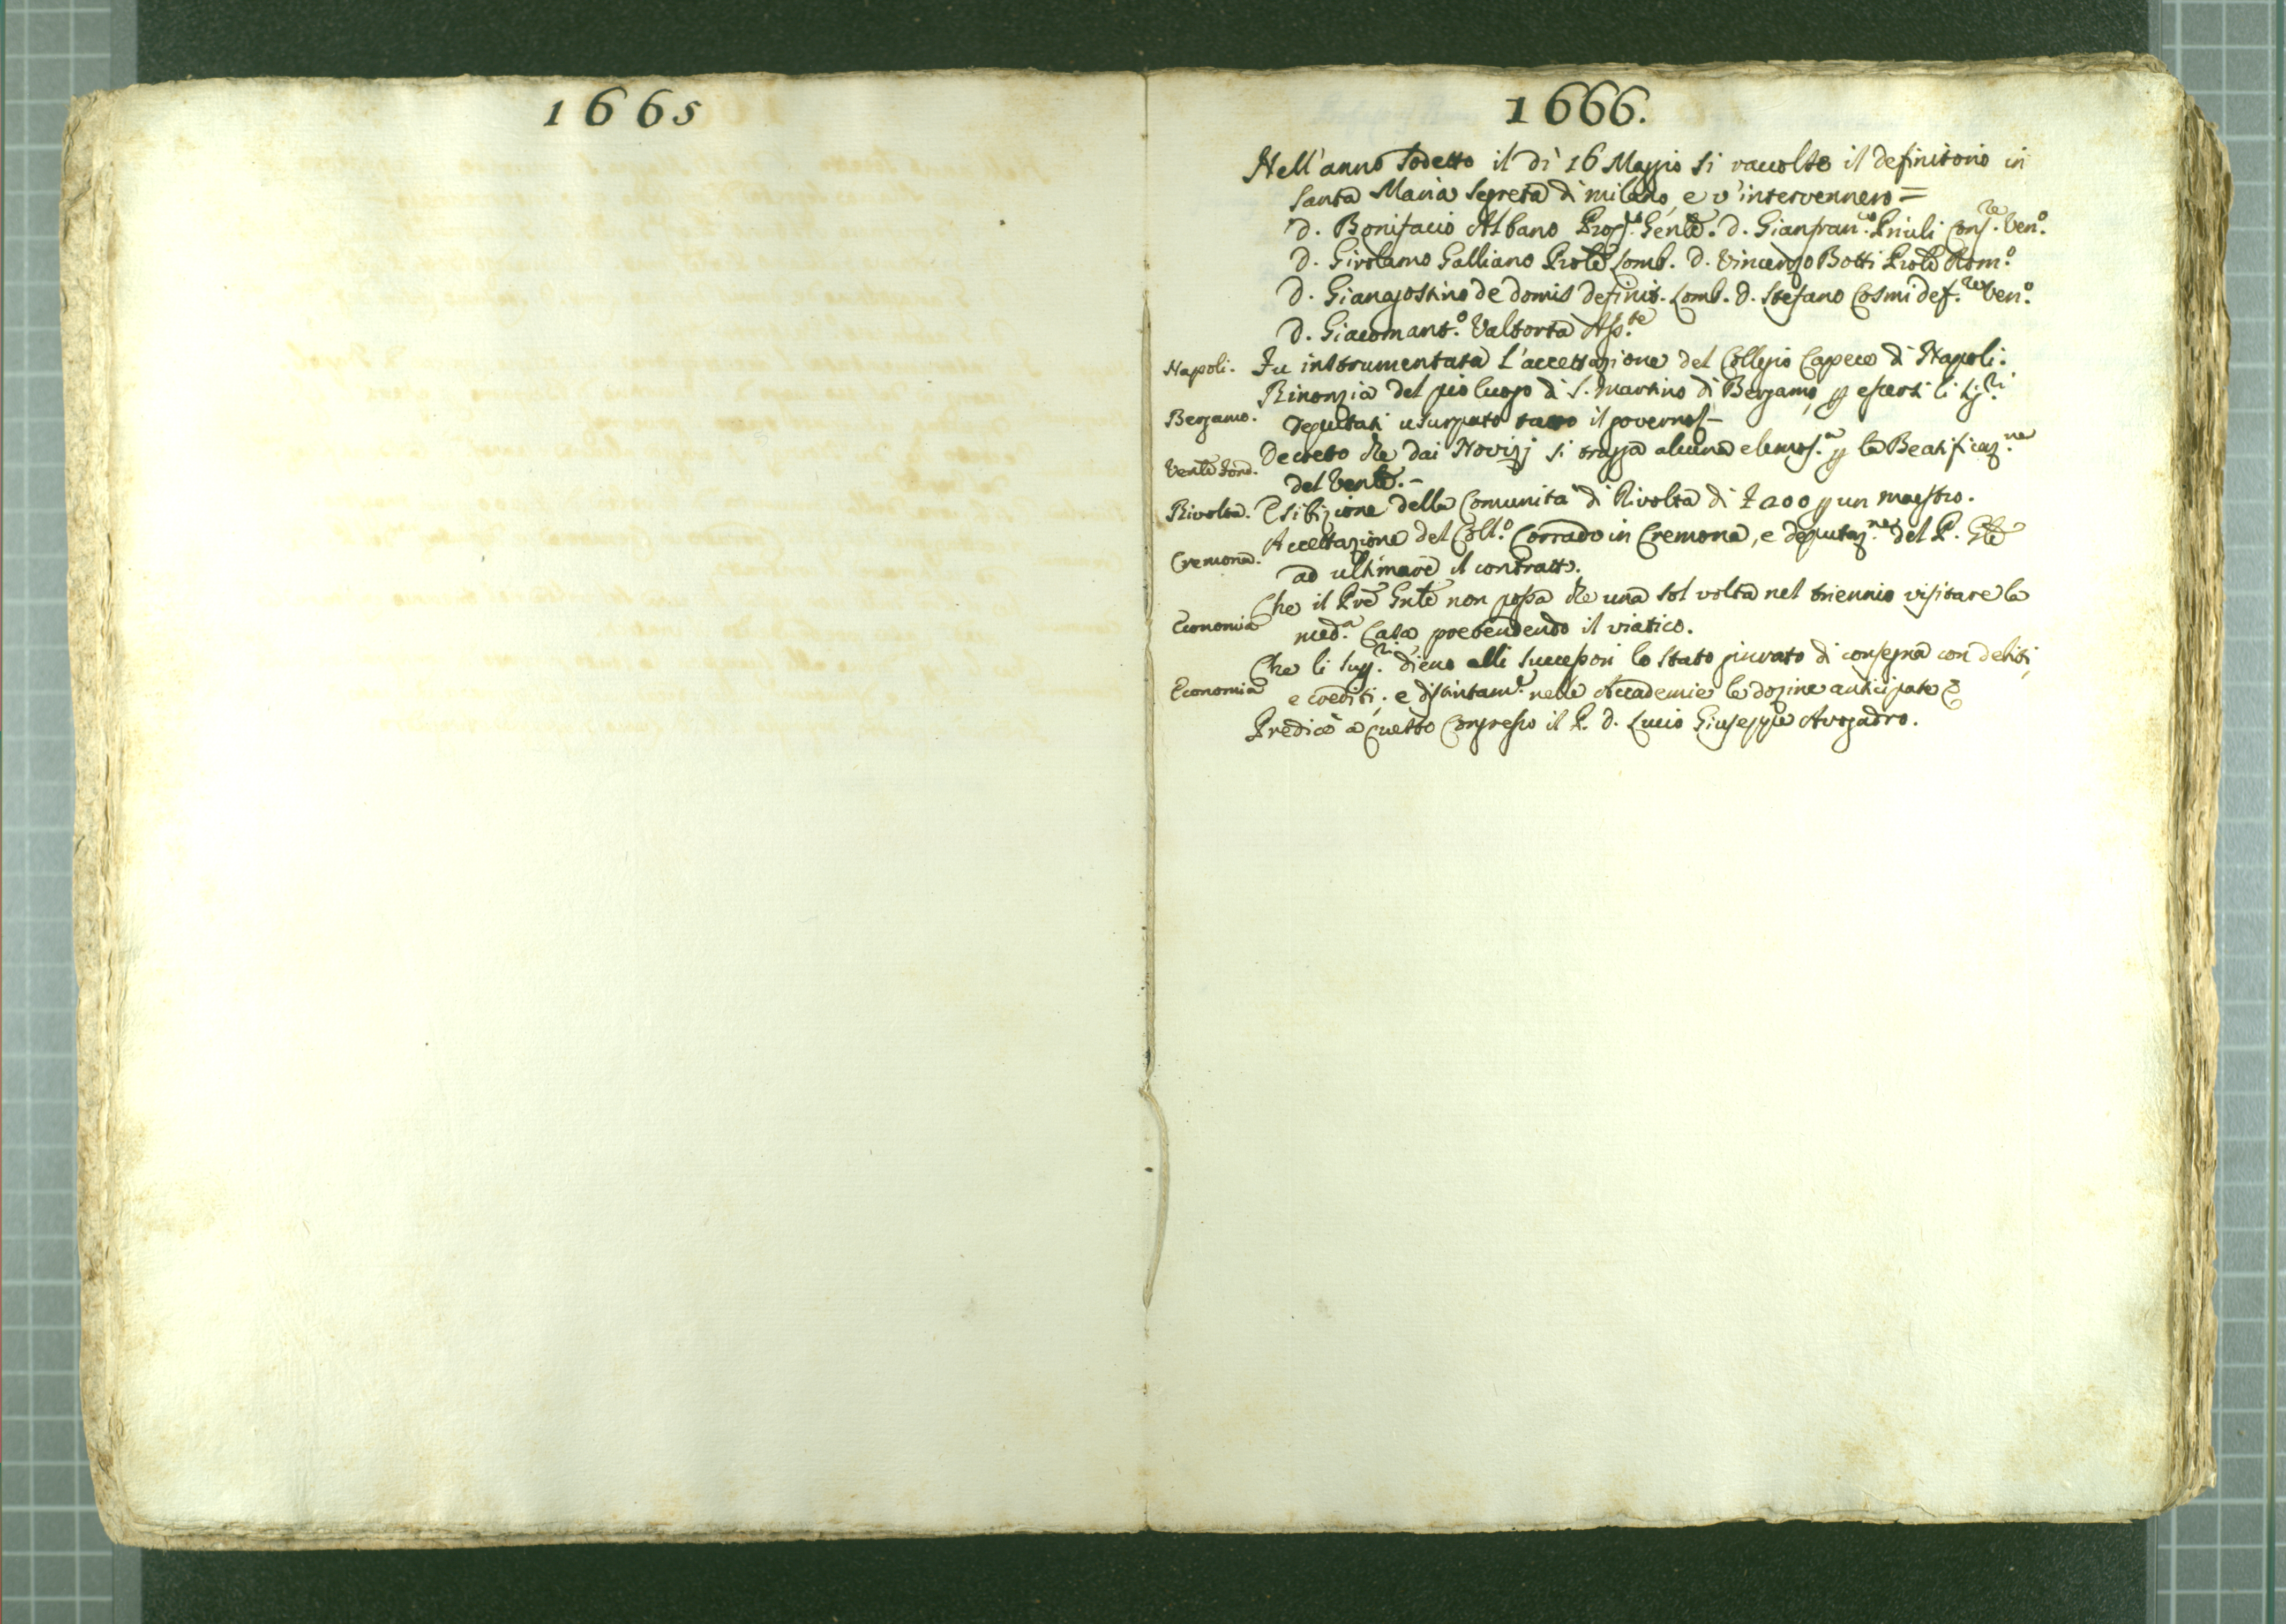 1665
1666.
Nell'anno sodetto il dì 16 Maggio si raccolse il definitorio in
Santa Maria Segreta di milano, e v'intervennero =
D. Bonifacio Albano Prop.to Genle. D. Gianfran.co Priuli Cons.re Ven.o
D. Girolamo Galliano Prole Lomb. D. Vincenzo Botti Prole Rom.o
D. Giangostino de domis definit. Lomb. D. Stefano Cosmi def.re Ven.o
D. Giacomant.o Valtorta Ass.te
Napoli. Fu instrumentata l'accettazione del Collegio Capece di Napoli.
Rinonzia del pio luogo di S. Martino di Bergamo, p essersi li Sig.ri
Bergamo. Deputati usurpato tutto il governo -
Decreto che dai Novizj si tragga alcuna elemos.a p la Beatificaz.ne
Venle Fond. del Venle. -
Rivolta. Esibizione della Comunità di Rivolta di £ 200 p un maestro.
Accettazione del Coll.o Corrado in Cremona, e deputaz.ne del P. Gle
Cremona. ad ultimare il contratto.
Che il Pre Gnle non possa che una sol volta nel triennio visitare la
Economia med.a Casa, pretendendo il viatico.
Che li Sup.ri dieno alli successori lo stato giurato di consegna con debiti,
Economia e crediti; e distintam.e nelle Accademie le dozine anticipate &
Predicò a questo Congresso il P. D. Lucio Giuseppe Avogadro.